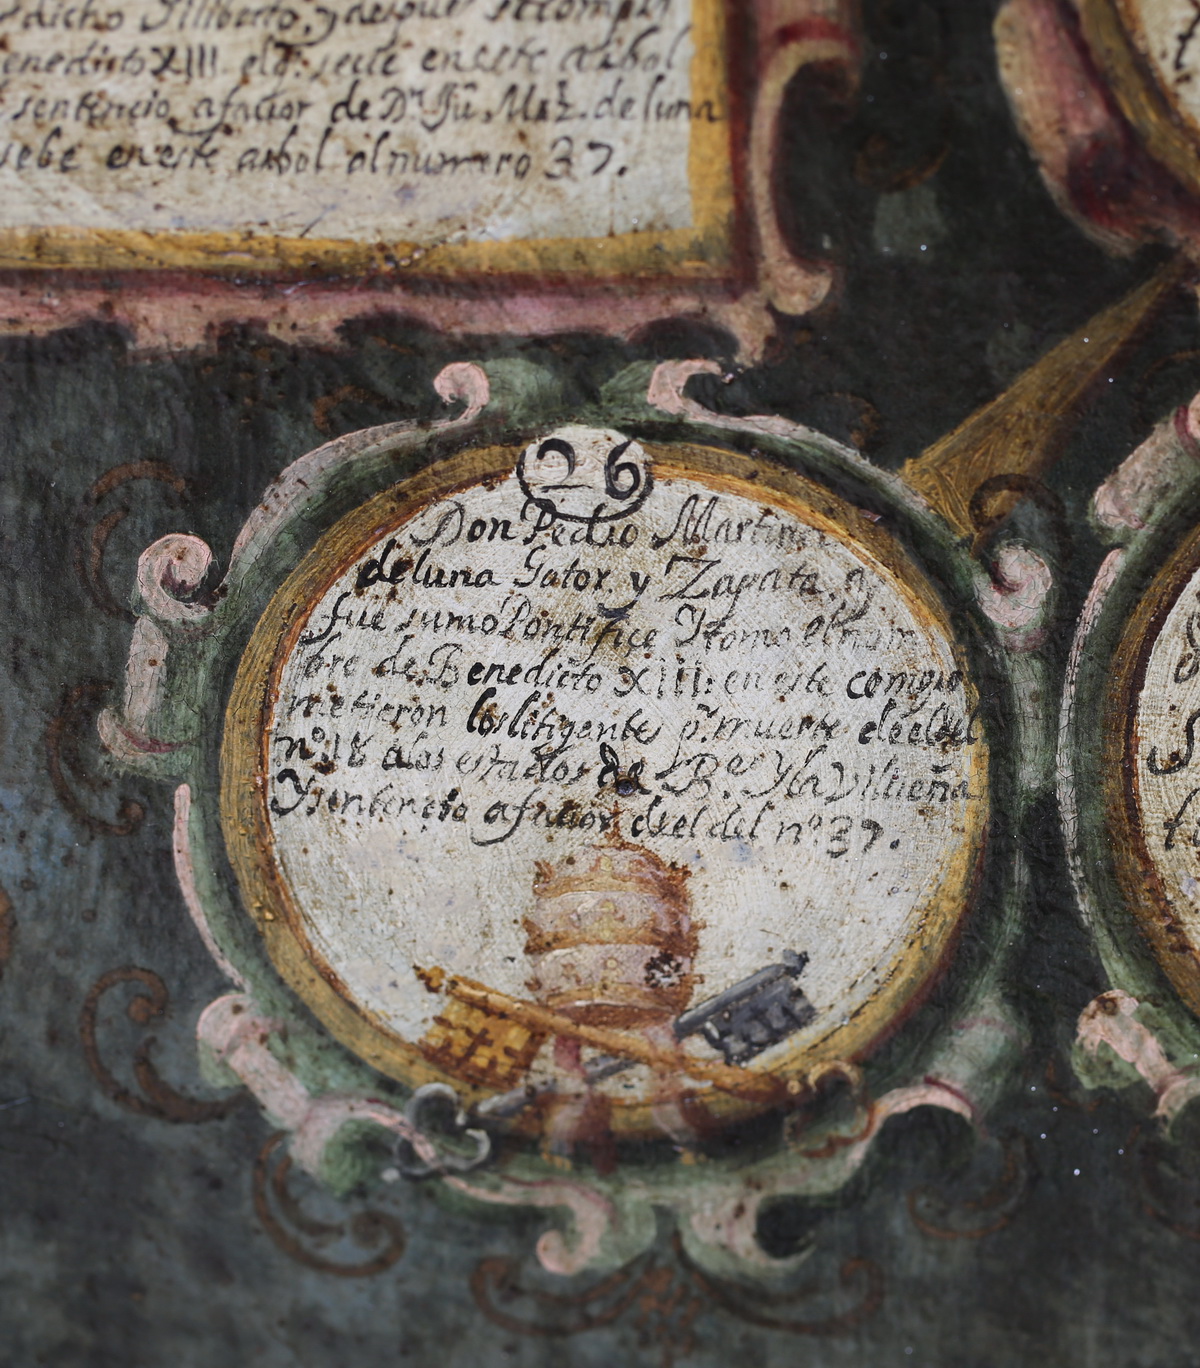 dicho Filiberto, y despues
Benedicto XIII. el q. se ve en este arbol
sentencio a fauor de Dn. Ju. Mrz. de luna
en este arbol al numero 37.
26
Don Pedro Martinez
de luna Gotor y Zapata, q
fue sumo Pontifice Y tomo el nom
bre de Benedicto XIII: en este
metieron los litigantes pr. muerte de el del
nº. 18 a los estados de Y la Villueña
Y sentencio a fauor de el del nº. 37.